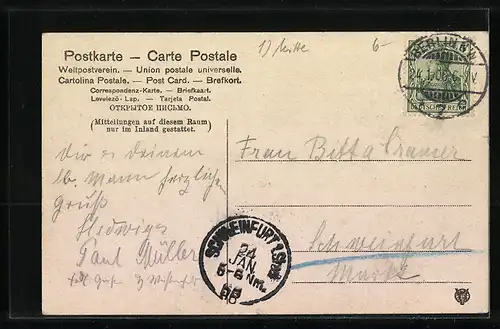 1) Mitte 6-
Postkarte — Carte Postale
Weltpostverein. — Union postale universelle.
Cartolina Postale. — Post Card. — Brefkort.
Correspondenz-Karte. — Briefkaart.
Levelező-Lap. — Tarjeta Postal.
ОТКРЫТОЕ ПИСЬМО.
(Mitteilungen auf diesem Raum
nur im Inland gestattet.)
BERLIN
24.1.
DEUTSCHES REICH
Dir & Deinem
lb. Mann herzliche
Grüß
Hedwig
Paul Müller
Frau Cramer
Schweinfurt
SCHWEINFURT 1.
24
JAN.
5-6 Nm.
06